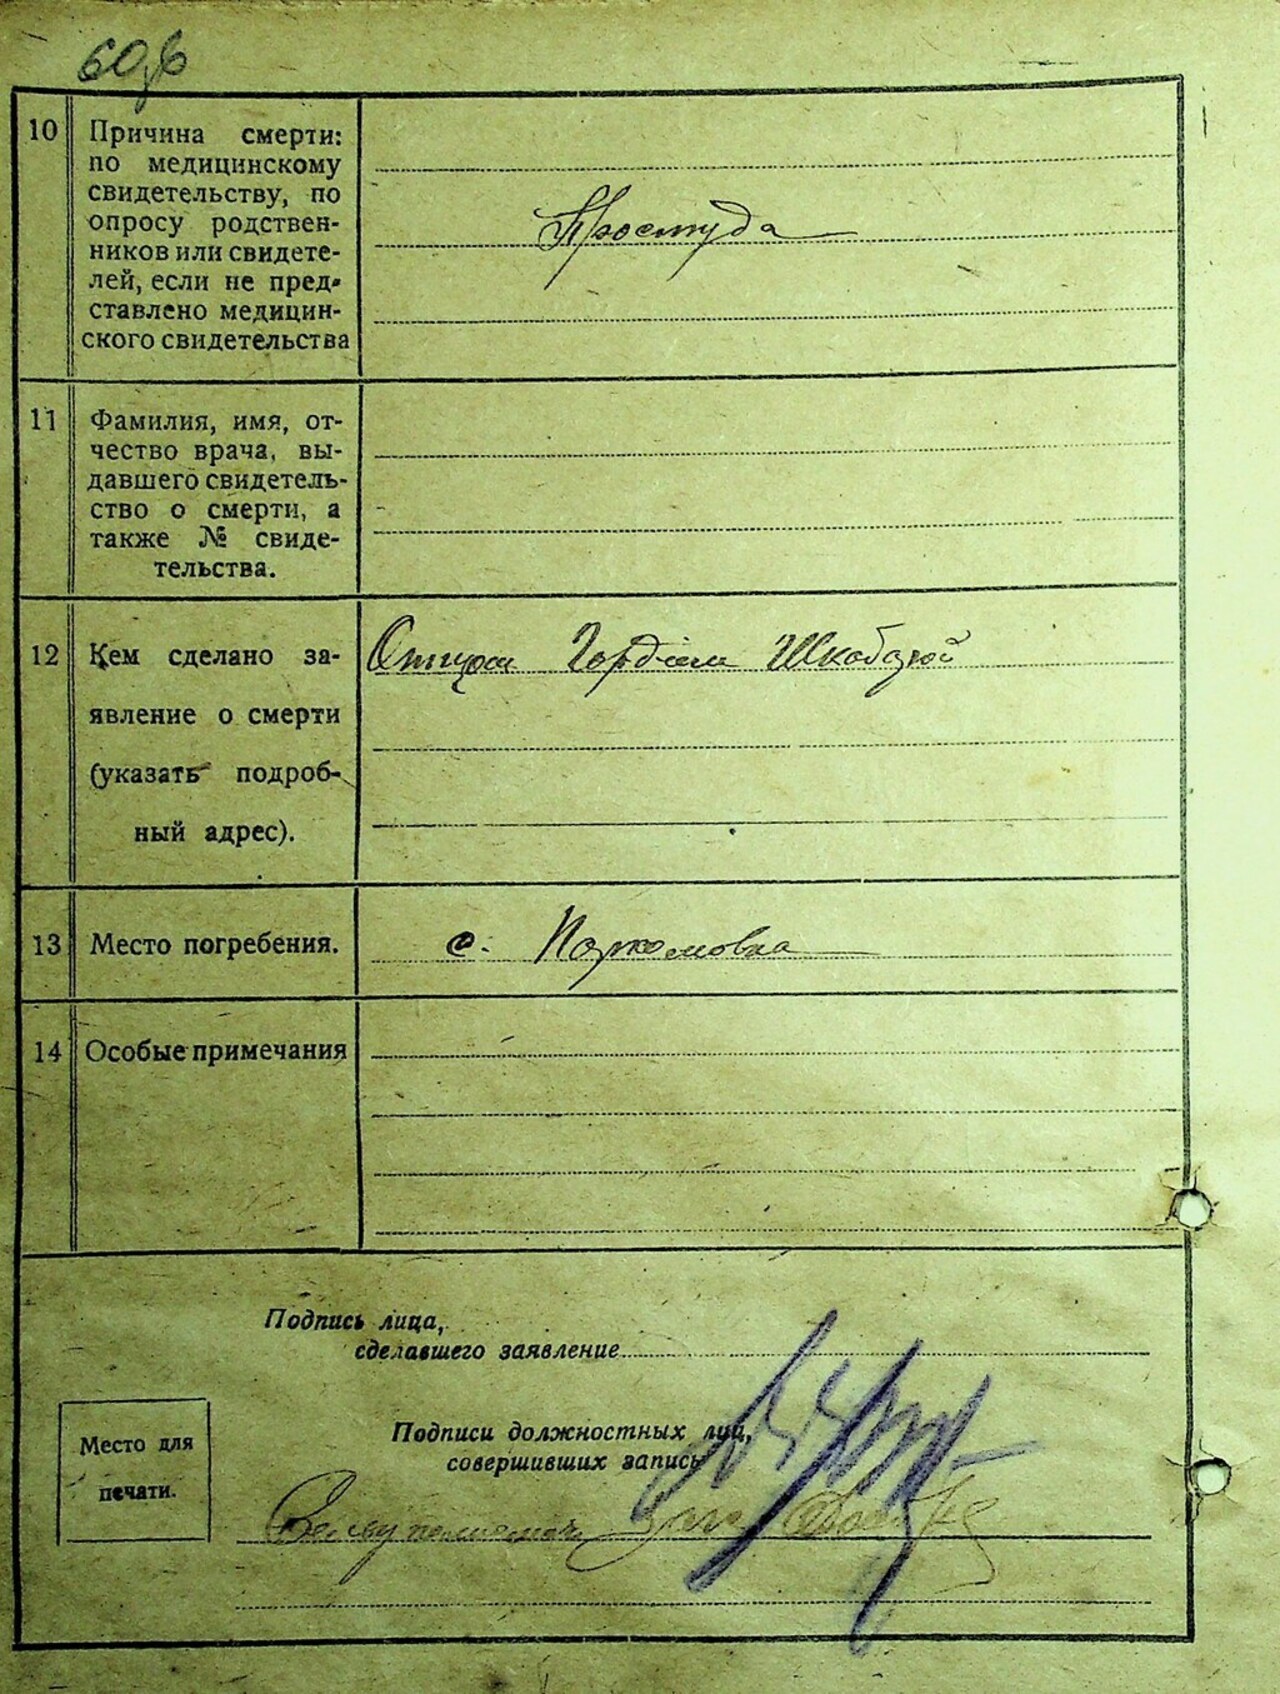 10 Причина смерти:
по медицинскому
свидетельству, по
опросу родствен-
ников или свидете-
лей, если не пред-
ставлено медицин-
ского свидетельства
Простуда
11 Фамилия, имя, от-
чество врача, вы-
давшего свидетель-
ство о смерти, а
также № свиде-
тельства.
12 Кем сделано за-
явление о смерти
(указать подроб-
ный адрес).
Отцом
13 Место погребения.
с. Пархомовка
14 Особые примечания
Подпись лица,
сделавшего заявление
Подписи должностных лиц,
совершивших запись
Место для
печати.